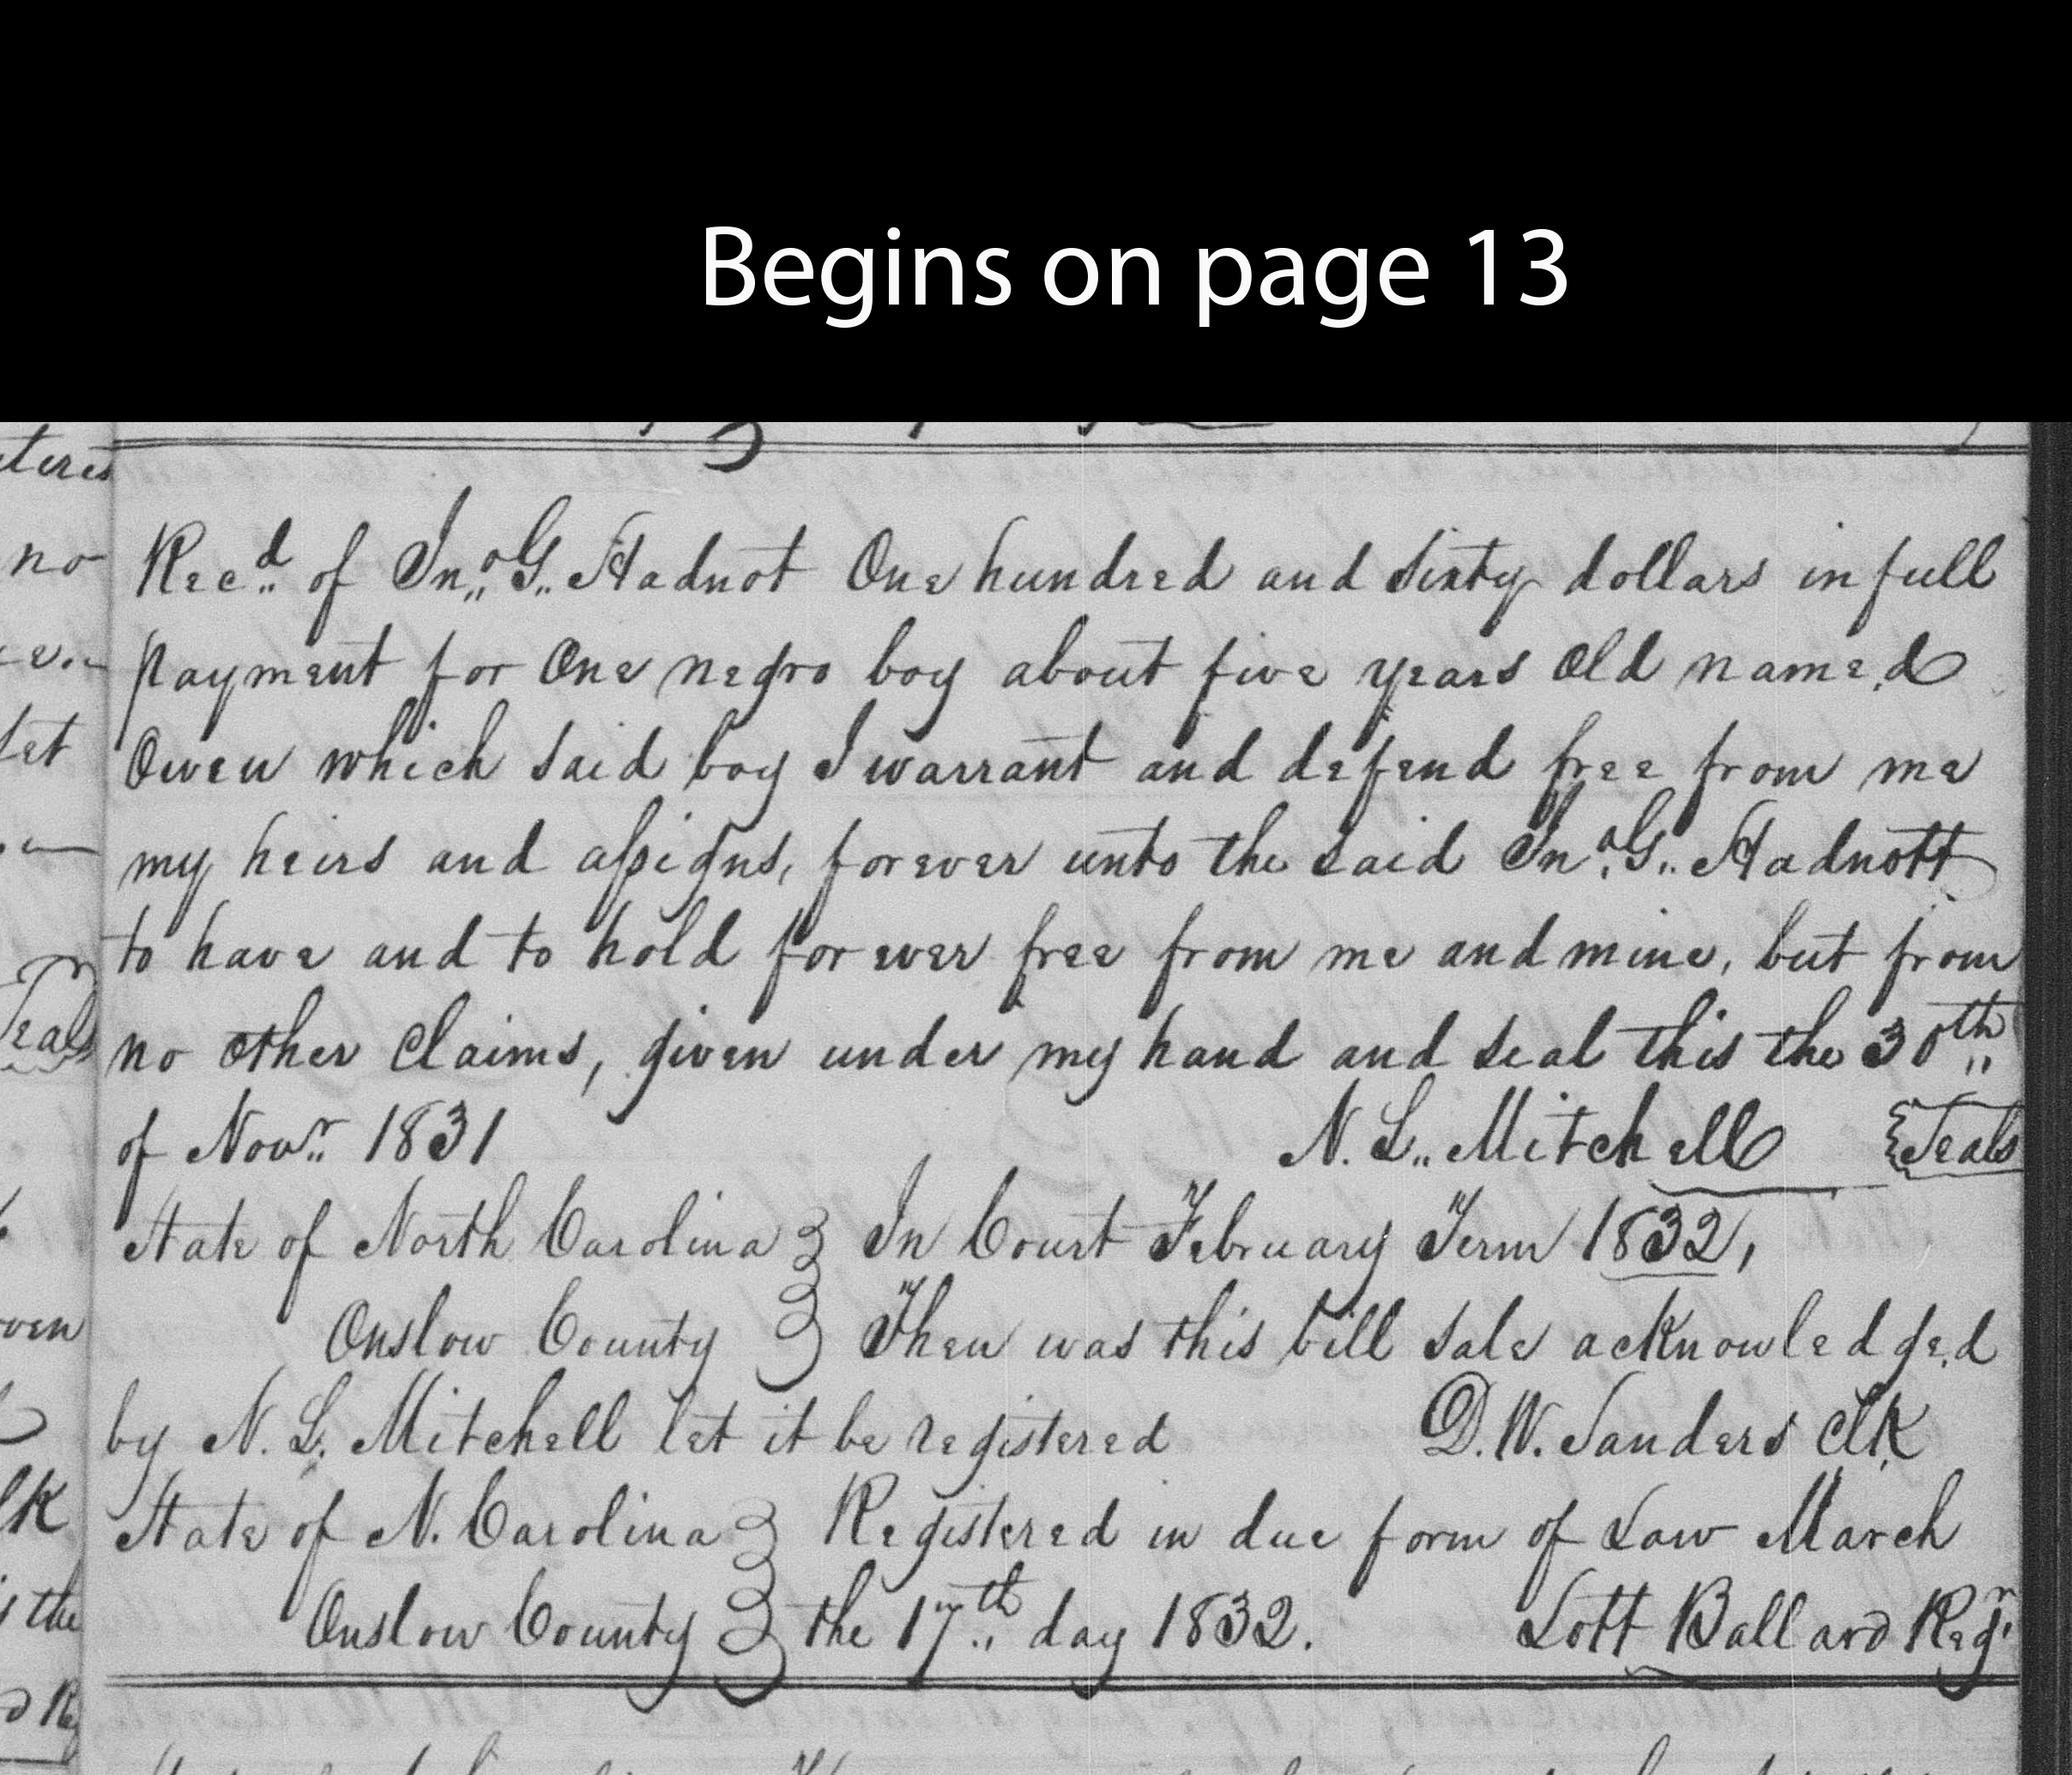 Begins on page 13
Rec.d of Jno. G. Hadnot One hundred and Sixty dollars in full
payment for One negro boy about five years Old named
Owen which said boy I warrant and defend free from me
my heirs and assigns, forever unto the said Jno. G. Hadnott
to have and to hold forever free from me and mine, but from
no other Claims, given under my hand and seal this the 30th
of Novr. 1831 N. L. Mitchell {Seal}
State of North Carolina } In Court February Term 1832,
Onslow County } Then was this bill Sale acknowledged
by N. L. Mitchell let it be registered D. W. Sanders Clk
State of N. Carolina } Registered in due form of Law March
Onslow County } the 17th day 1832. Lott Ballard Regr.